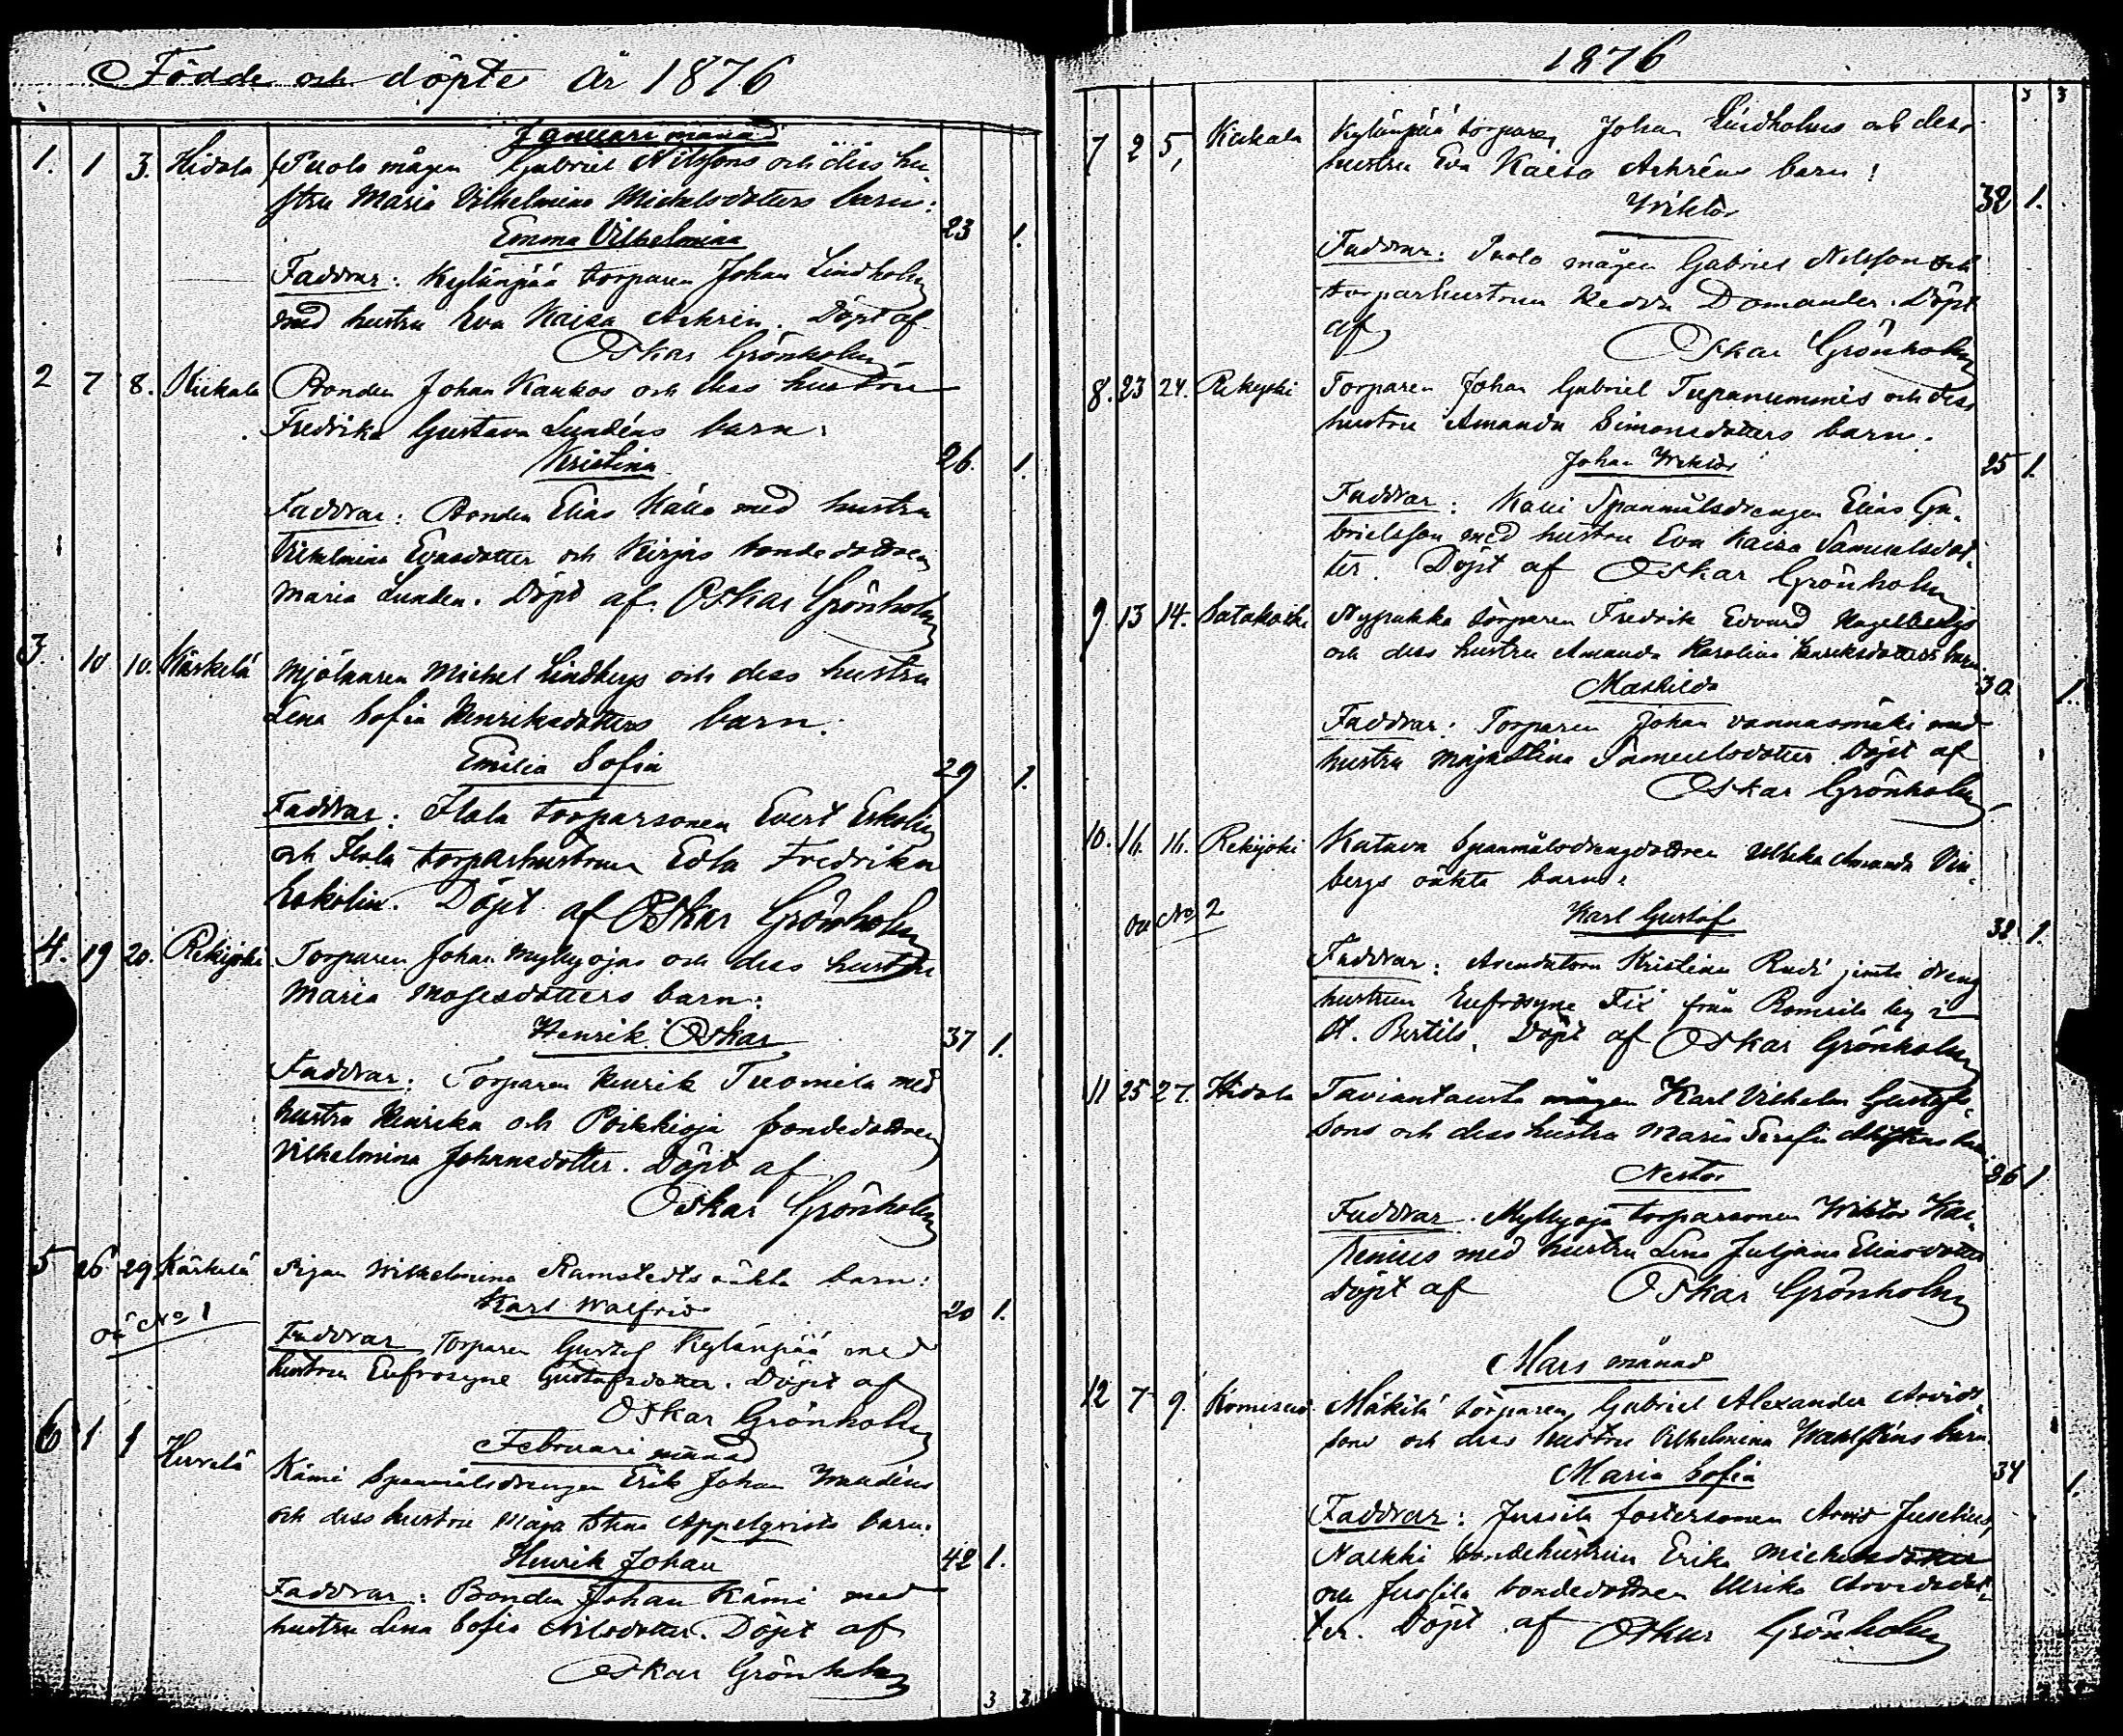 Födde och döpte år 1876
Januari månad
1. 1 3. Hidola Puolo mågen Gabriel Nilssons och dess hu-
stru Maria Vilhelmina Michelsdotters barn:
Emma Vilhelmina 23 1.
Faddrar: Kylänpää torparen Johan Lindholm
med hustru Eva Kaisa Achrén. Döpt af
Oskar Grönholm
2 7 8. Kiikala Bonden Johan Kaukos och dess hustru
Fredrika Gustava Lundéns barn:
Kristina 26. 1.
Faddrar: Bonden Elias Källa med hustru
Vilhelmina Evasdotter och Kirjas bondedottren
Maria Lunden. Döpt af Oskar Grönholm
3. 10 10. Kärkelä Mjölnaren Michel Lindbergs och dess hustru
Lena Sofia Henriksdotters barn:
Emilia Sofia 29 1.
Faddrar: Ilola torparsonen Evert Eskolin
och Ilola torparhustrun Edla Fredrika
Eskolin. Döpt af Oskar Grönholm
4. 19 20. Rekijoki Torparen Johan Myllyojas och dess hustru
Maria Mosesdotters barn:
Henrik Oskar 37 1.
Faddrar: Torparen Henrik Tuomila med
hustru Henrika och Poikkioja bondedottren
Vilhelmina Johansdotter. Döpt af
Oskar Grönholm
5 26 29 Kärkelä Pigan Wilhelmina Ramstedts oäkta barn:
oä No 1 Karl Walfrid 20 1.
Faddrar Torparen Gustaf Kylänpää med
hustru Eufrosyne Gustafsdotter. Döpt af
Oskar Grönholm
Februari månad
6 1 1 Hirvelä Kämi Spanmålsdrengen Erik Johan
och dess hustru Maja Stina Appelqvists barn.
Henrik Johan 42 1.
Faddrar: Bonden Johan Kämi med
hustru Lena Sofia Nilsdotter. Döpt af
Oskar Grönholm
3 3
1876
3 3
7 2 5, Kiikala Kylänpää torparen Johan Lindholms och dess
hustru Eva Kaisa Achréns barn:
Wiktor 32 1.
Faddrar: Puolo mågen Gabriel Nilsson och
torparhustrun Hedda Domander. Döpt
af Oskar Grönholm
8. 23 24. Rekijoki Torparen Johan Gabriel Tupanummis och dess
hustru Amanda Simonsdotters barn.
Johan Wiktor 25 1.
Faddrar: Kalli Spanmålsdrengen Elias Ga-
brielsson med hustru Eva Kaisa Samuelsdot-
ter. Döpt af Oskar Grönholm
9 13 14. Satakoski Nypukka torparen Fredrik Edvard Hagelbergs
och dess hustru Amanda Karolina Henriksdotters barn.
Mathilda 30. 1.
Faddrar: Torparen Johan Vannasmäki med
hustru Maja Stina Samuelsdotter. Döpt af
Oskar Grönholm
10. 16. 16. Rekijoki Katava Spanmålsdrengdottren Ulrika Amanda Vin-
bergs oäkta barn:
oä No 2 Karl Gustaf 38 1.
Faddrar: Arendatorn Kristian Rudi jemte dreng
hustrun Eufrosyne Fri från Romsila by i
St. Bertils. Döpt af Oskar Grönholm
11 25 27. Hidola Taviantausta mågen Karl Vilhelm Gustafs-
sons och dess hustru Maria Serafia barn
Nestor 26 1
Faddrar. Myllyoja torparsonen Wiktor
med hustru Lena Juljana Eliasdotter
Döpt af Oskar Grönholm
Mars månad
12 7 9. Komisuo Mäkilä torparen Gabriel Alexander Arvids-
sons och dess hustru Vilhelmina Wahlsténs barn
Maria Sofia 34 1.
Faddrar: Jussila fostersonen Arvid Juselius,
Naukki bondehustrun Erika Michelsdotter
och Jussila bondedottren Ulrika Arvidsdot-
ter. Döpt af Oskar Grönholm